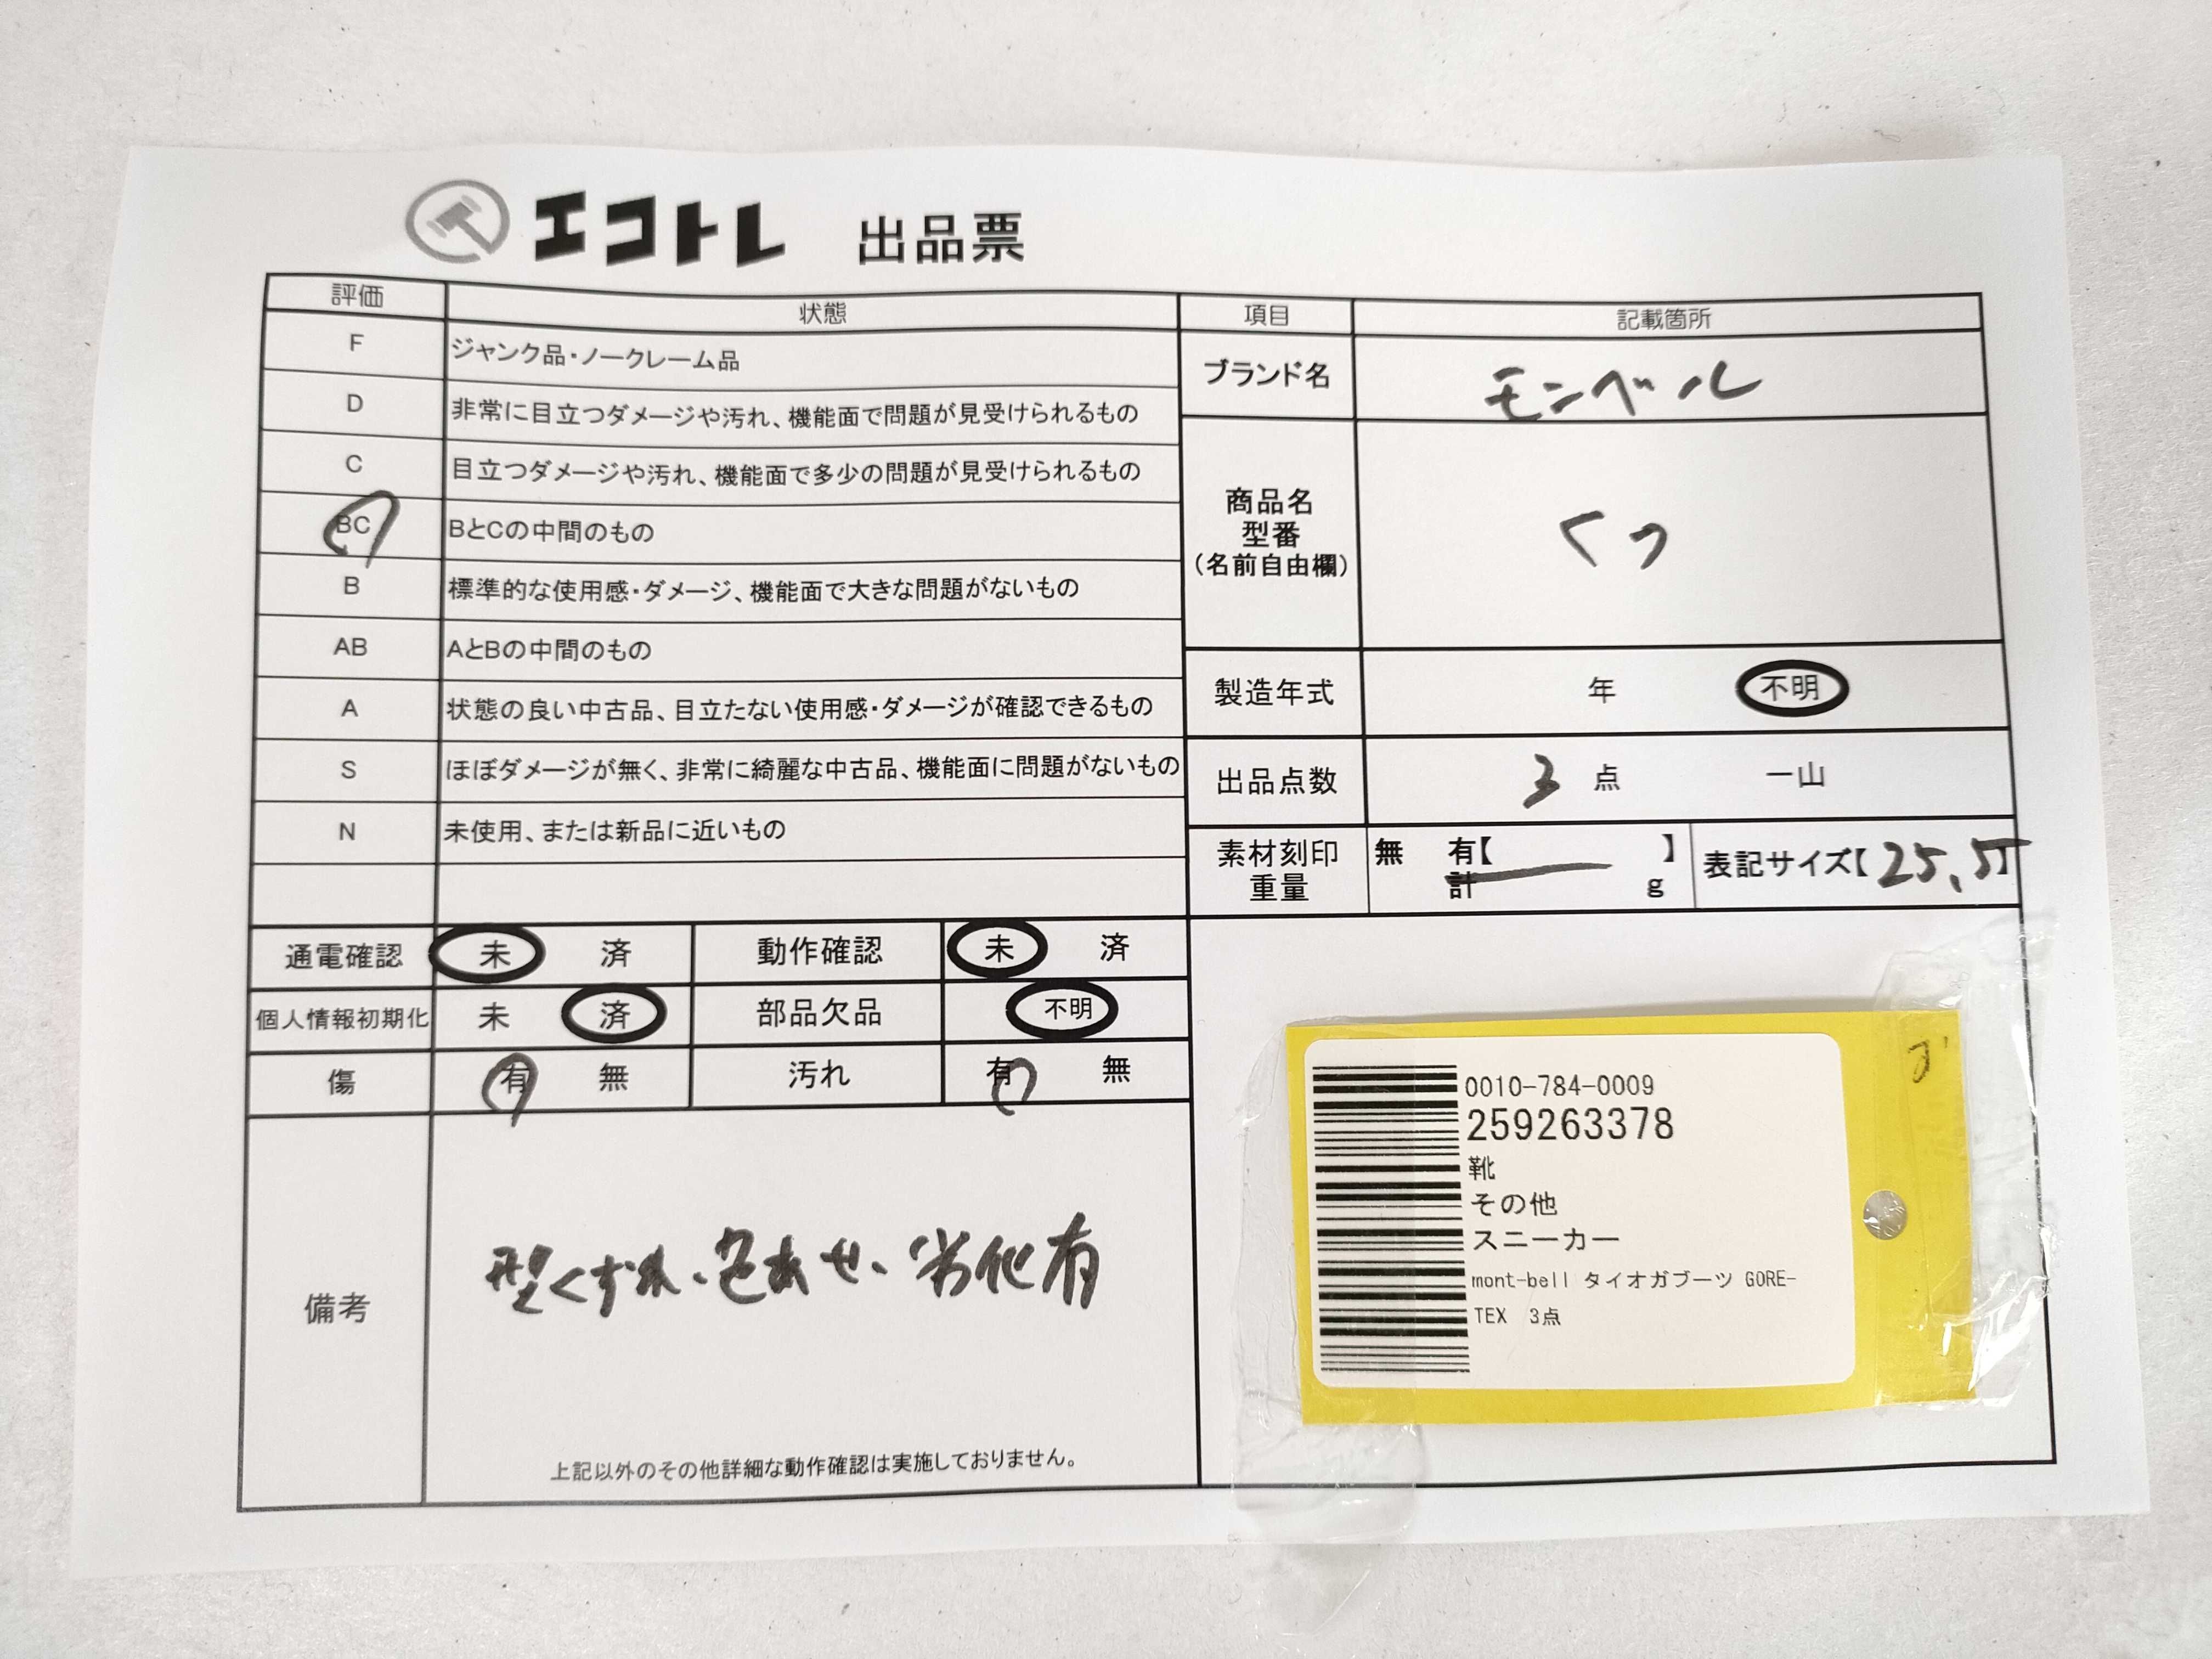 エコトレ 出品票
評価 状態
F ジャンク品・ノークレーム品
D 非常に目立つダメージや汚れ、機能面で問題が見受けられるもの
C 目立つダメージや汚れ、機能面で多少の問題が見受けられるもの
BC BとCの中間のもの
B 標準的な使用感・ダメージ、機能面で大きな問題がないもの
AB AとBの中間のもの
A 状態の良い中古品、目立たない使用感・ダメージが確認できるもの
S ほぼダメージが無く、非常に綺麗な中古品、機能面に問題がないもの
N 未使用、または新品に近いもの
項目 記載箇所
ブランド名 モンベル
商品名
型番
(名前自由欄)
くつ
製造年式 年 不明
出品点数 3 点 一山
素材刻印 無 有【 】
重量 計 g
表記サイズ【25.5】
通電確認 未 済 動作確認 未 済
個人情報初期化 未 済 部品欠品 不明
傷 有 無 汚れ 有 無
備考
型くずれ、色あせ、劣化有
上記以外のその他詳細な動作確認は実施しておりません。
0010-784-0009
259263378
靴
その他
スニーカー
mont-bell タイオガブーツ GORE-
TEX 3点